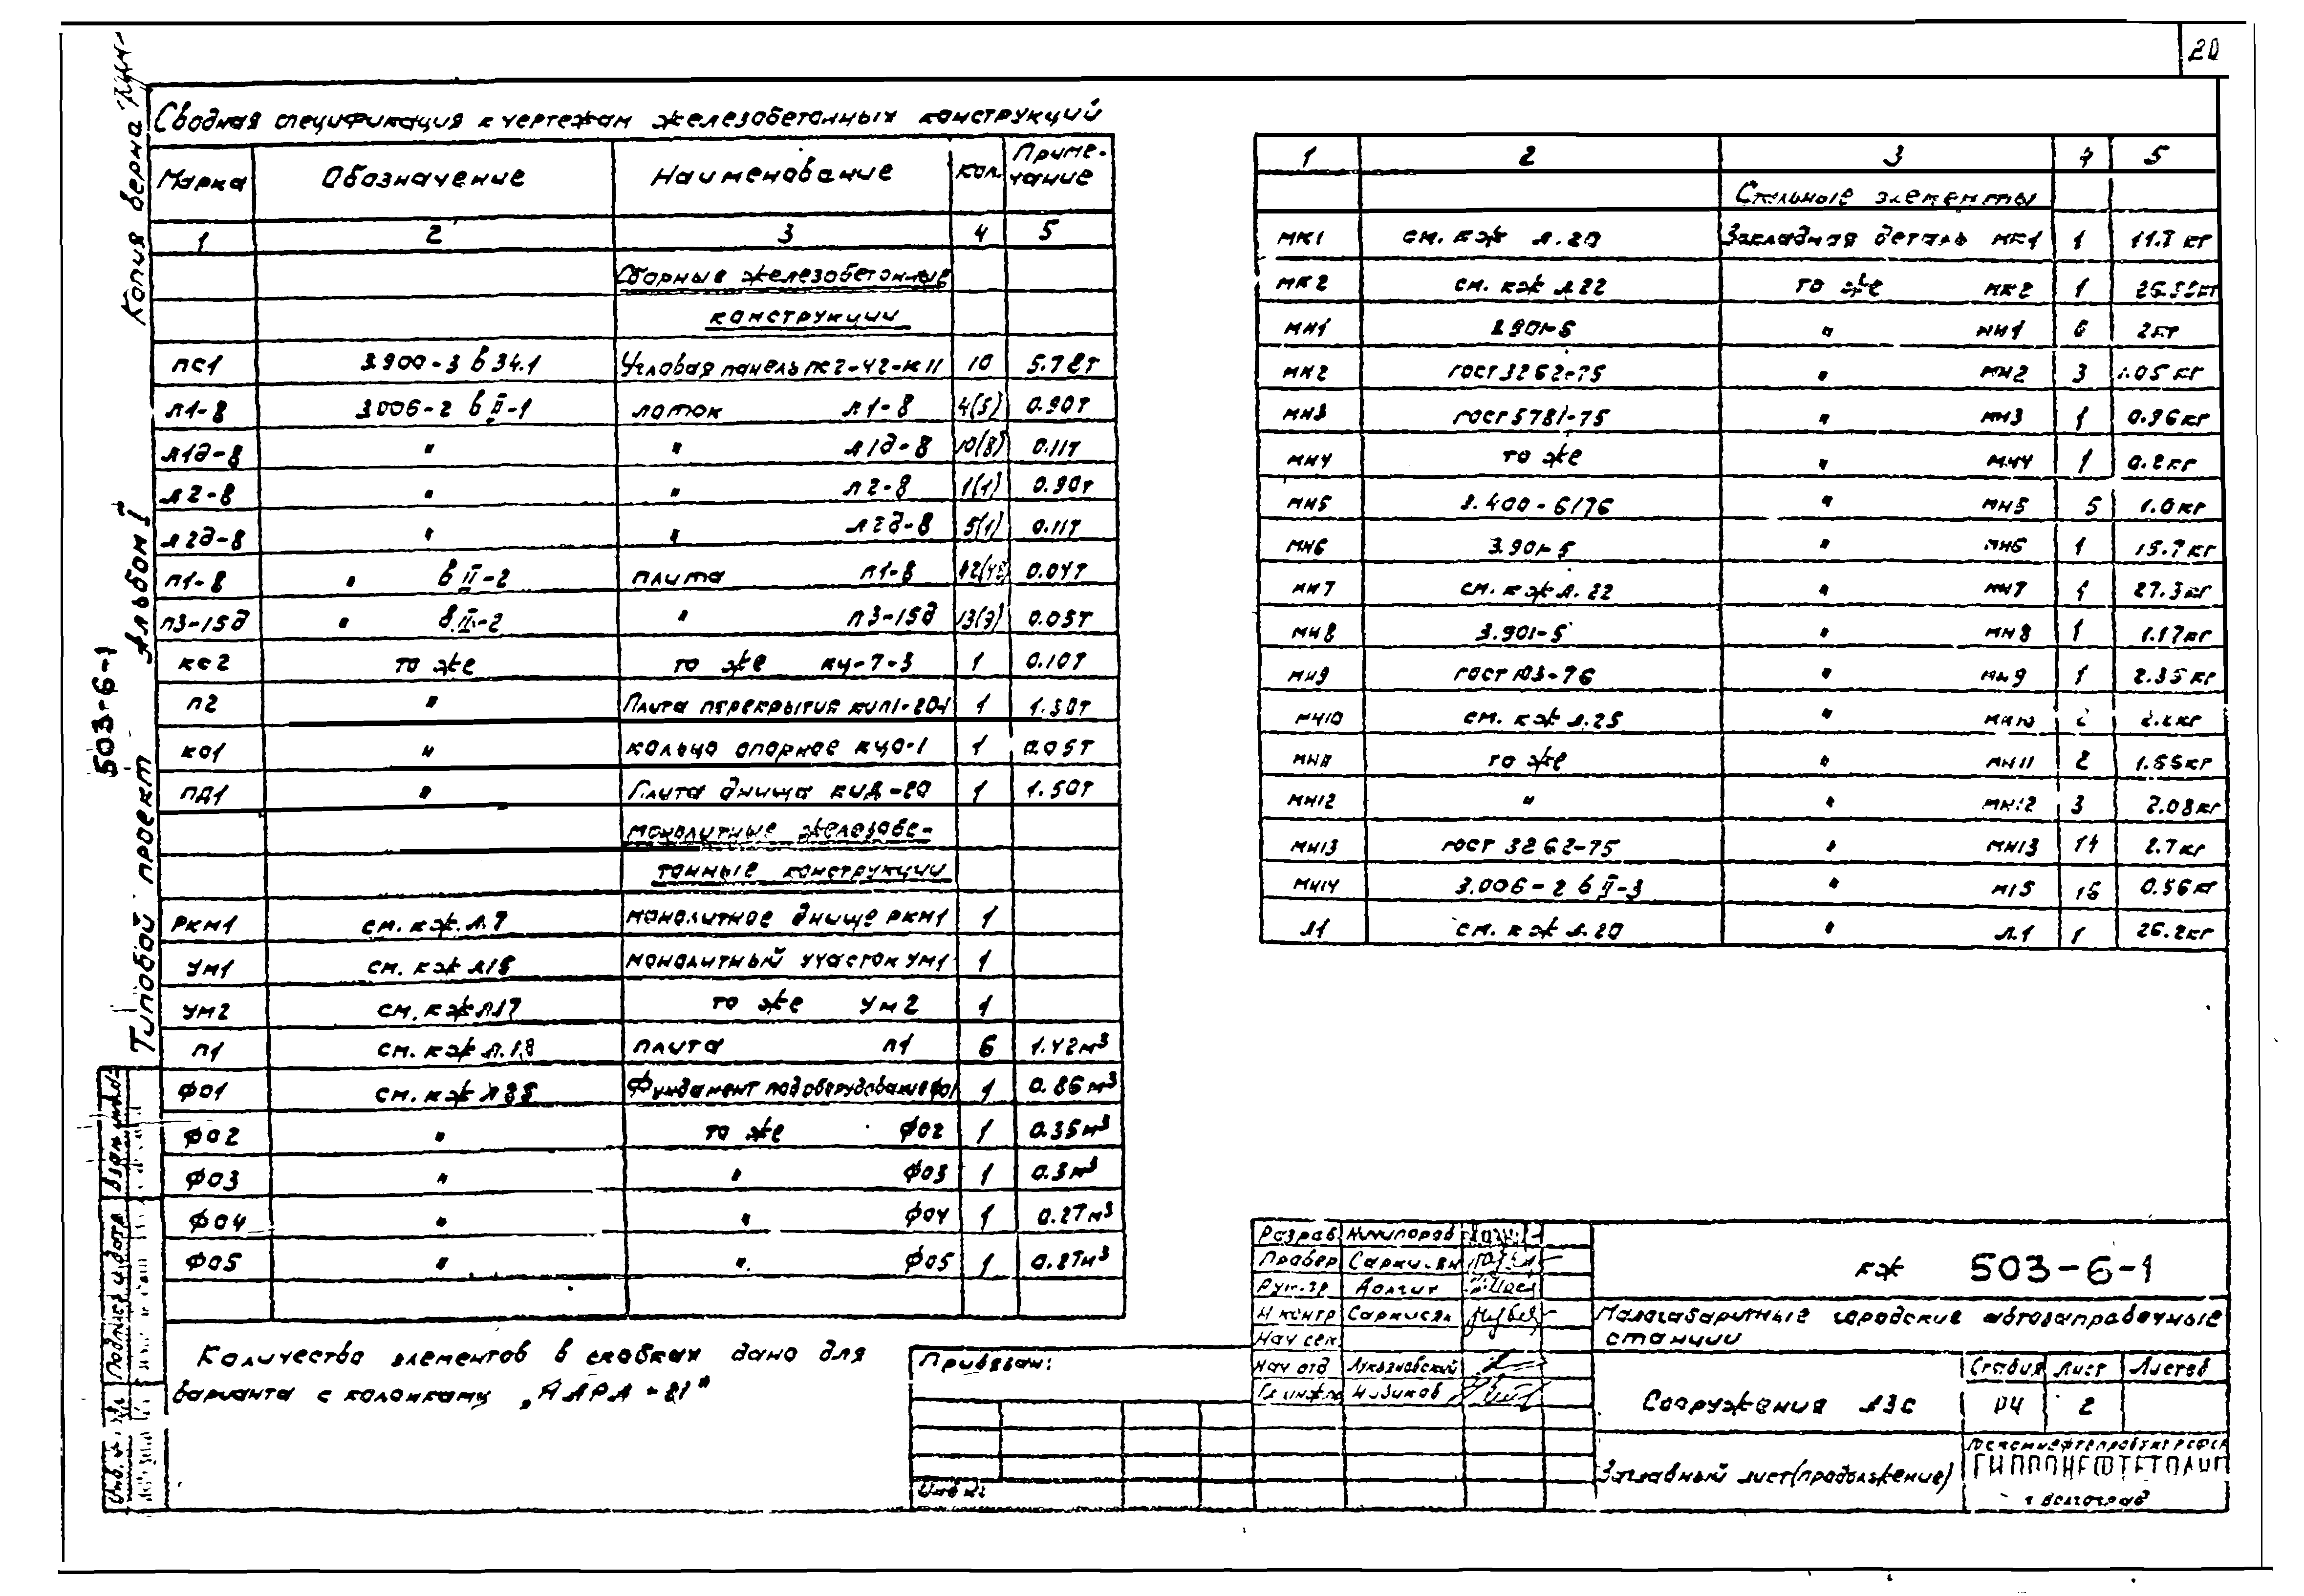 20
Копия верна
Типовой проект 503-6-1 Альбом I
Сводная спецификация к чертежам железобетонных конструкций
Марка Обозначение Наименование Кол. Примечание
1 2 3 4 5
Сборные железобетонные
конструкции
ПС1 3.900-3 в 34.1 Угловая панель ПС2-42-К11 10 5.78т
Л1-8 3.006-2 в II-1 лоток Л1-8 4(5) 0.90т
Л1д-8 " " Л1д-8 10(8) 0.11т
Л2-8 " " Л2-8 1(1) 0.90т
Л2д-8 " " Л2д-8 5(1) 0.11т
П1-8 " в II-2 плита П1-8 0.04т
П3-15д " в II-2 " П3-15д 13(9) 0.05т
КС2 то же то же КЦ-7-3 1 0.10т
П2 " Плита перекрытия 1 1.30т
КО1 " кольцо опорное КЦО-1 1 0.05т
ПД1 " Плита днища КЦД-20 1 1.50т
монолитные железобе-
тонные конструкции
РКМ1 см. КЖ л.7 монолитное днище РКМ1 1
УМ1 см. КЖ л15 монолитный участок УМ1 1
УМ2 см. КЖ л17 то же УМ2 1
П1 см. КЖ л.18 плита П1 6 1.42м³
ФО1 см. КЖ л Фундамент под оборудование ФО1 1 0.86м³
ФО2 " то же ФО2 1 0.35м³
ФО3 " " ФО3 1 0.3м³
ФО4 " " ФО4 1 0.27м³
ФО5 " " ФО5 1 0.27м³
Количество элементов в скобках дано для
варианта с колонками „НАРА-21"
1 2 3 4 5
Стальные элементы
МК1 см. КЖ л.20 Закладная деталь МК1 1 11.8 кг
МК2 см. КЖ л.22 то же МК2 1
МН1 3.901-5 " МН1 6 2кг
МН2 ГОСТ 3262-75 " МН2 3 1.05 кг
МН3 ГОСТ 5781-75 " МН3 1 0.96кг
МН4 то же " МН4 1 0.2кг
МН5 3.400-6/76 " МН5 5 1.0кг
МН6 3.901-5 " МН6 1 15.7кг
МН7 см. КЖ л.22 " МН7 1 27.3кг
МН8 3.901-5 " МН8 1 1.17кг
МН9 ГОСТ 103-76 " МН9 1 2.35кг
МН10 см. КЖ л.25 " МН10 2
МН11 то же " МН11 2 1.66кг
МН12 " " МН12 3 2.08кг
МН13 ГОСТ 3262-75 " МН13 14 2.7кг
МН14 3.006-2 в II-3 " М15 16 0.56кг
Л1 см. КЖ л.20 " Л.1 1 26.2кг
Привязан:
Инв №:
Разраб.
Провер
Рук.гр. Долгих
Н контр Саркисян
Нач сек.
Нач отд Лукьяновский
Гл инж пр Новиков
КЖ 503-6-1
Малогабаритные городские автозаправочные
станции
Сооружения АЗС
Стадия Лист Листов
РЧ 2
Заглавный лист (продолжение)
Госкомнефтепродукт РСФСР
ГИПРОНЕФТЕТРАНС
г Волгоград
Инв. № Подпись и дата Взам. инв. №